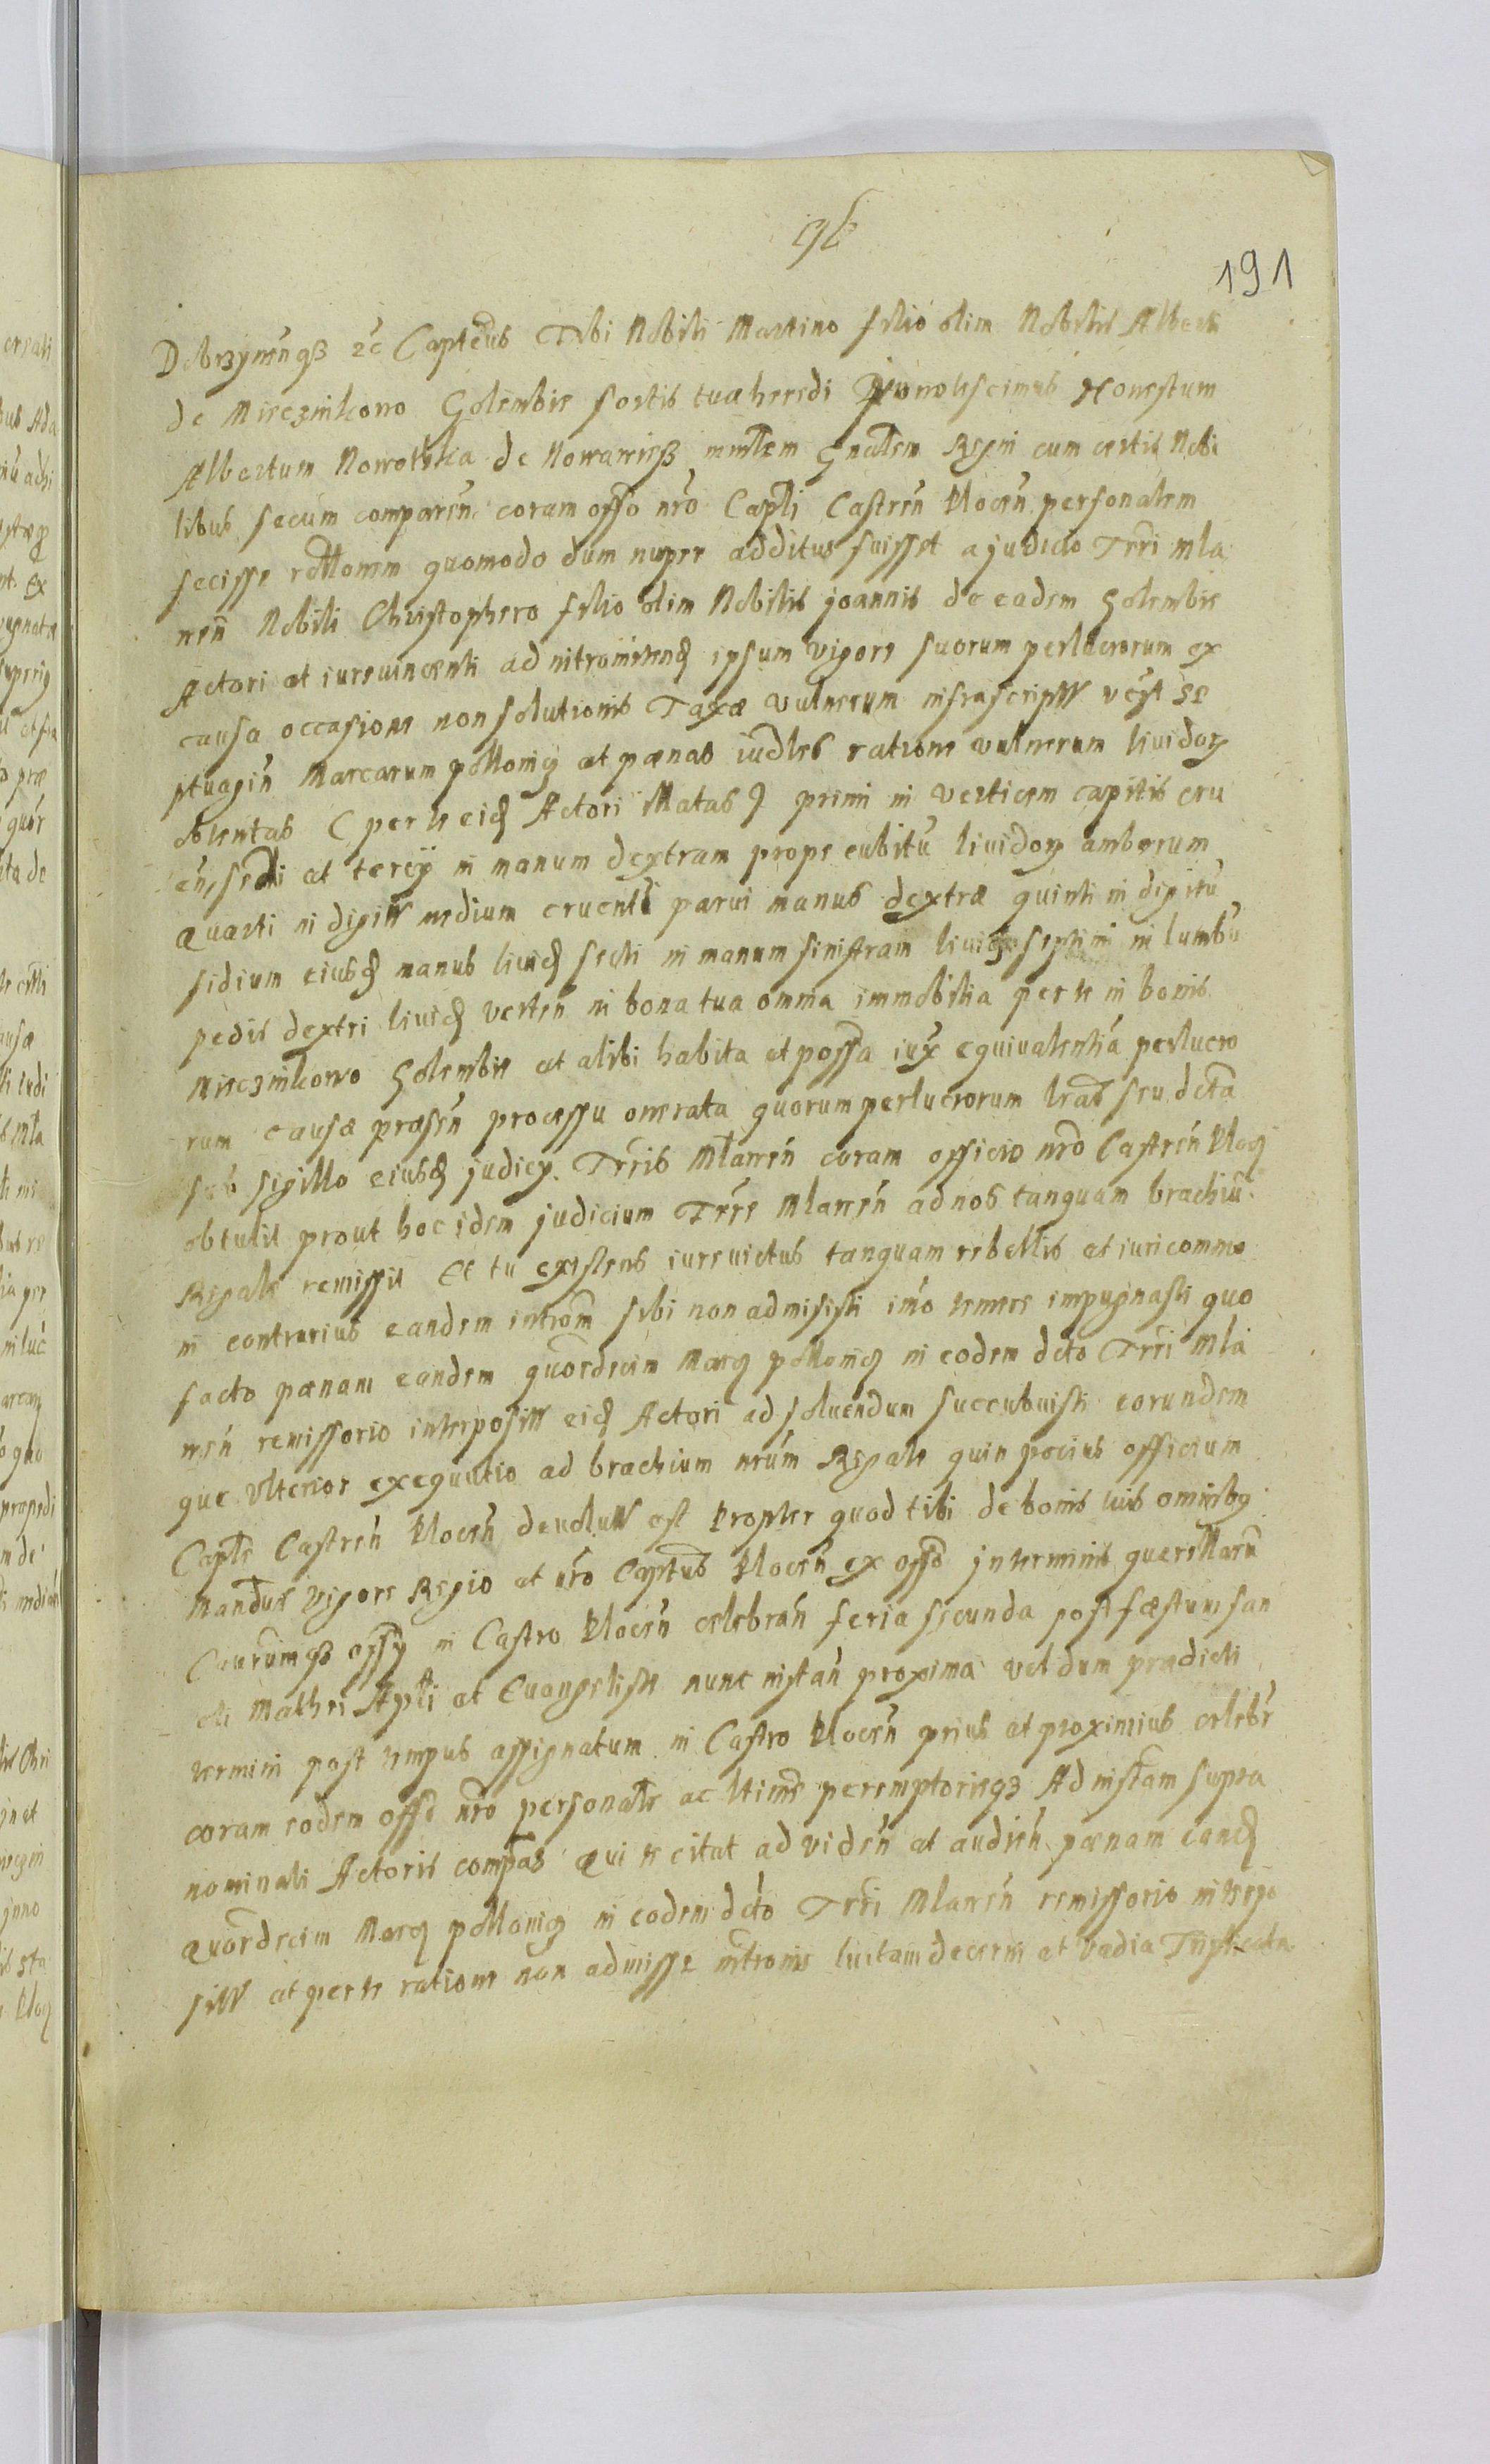 191
Dobrzynenqз etc Capteus Tibi Nobili Martino filio olim Nobilis Alberti
de Mieczinkowo Golembie sortis tuae heredi Honestum
Albertum Nowotka de Nowawieß mintlem Gnalem Regni cum certis Nobi
libus secum comparen coram offo nro Capli Castren Plocen personalem
fecisse rellonem quomodo dum nuper additus fuisset a judicio Trri Mla
wen Nobili Christophero filio olim Nobilis Joannis de eadem Golembie
Actori et iurevincenti ad intromittend ipsum vigore suorum perlucrorum ex
causa occasione non solutionis Taxae vulnerum infrascriptt
ptuagin Marcarum pollonicq et paenas iudles ratione vulnerum lividorq
olentas (per te eid Actori illatas) primi in verticem capitis cru
en, secdi et tercij in manum dextram prope cubitu lividorq amborum
Quarti in digitt medium cruenti parvi manus dextrae quinti in digitu
sidium eiusd manus livid sexti in manum sinistram livid septimi in lumbu
pedis dextri livid verten in bona tua omnia immobilia per te in bonis
Mieczinkowo Golembie et alibi habita et possa iux equivalentia perlucro
rum causae praesen processu onerata quorum perlucrorum lras seu dcta
sub sigillo eiusd judicij Trris Mlawen coram officio nro Castren Ploc
obtulit prout hoc idem judicium Trre Mlawen ad nos tanquam brachiu
Regale remissit Et tu existens iurevictus tanquam rebellis et iuri commu
ni contrarius eandem introm sibi non admisisti imo temere impugnasti quo
facto paenam eandem quordecim Marc pollonicq in eodem dcto Trri Mla
wen remissorio interposittt eid Actori ad solvendum succubuisti eorundem
que ulterior exequutio ad brachium nrum Regale quin pocius officium
Caple Castren Plocen devolutt est Propter quod tibi de bonis tuis omnibq
Mandus vigore Regio et nro Captus Plocen ex offo in terminis querellaru
Caurumqз offij in Castro Plocen celebran feria secunda post faestum san
cti Mathei Apli et Evangeliste nunc instan proxima vel dum praedicti
termini post tempus assignatum in Castro Plocen prius et proximius celebr
coram eodem offo nro personale ac ltime peremptorieqз Ad instam supra
nominati Actoris compas Qui te citat ad viden et audien paenam eand
Quordecim Marc pollonicq in eodem dcto Trri Mlawen remissorio interpo
sitt et per te ratione non admisse intronis luitam decerni et vadia Triplicata